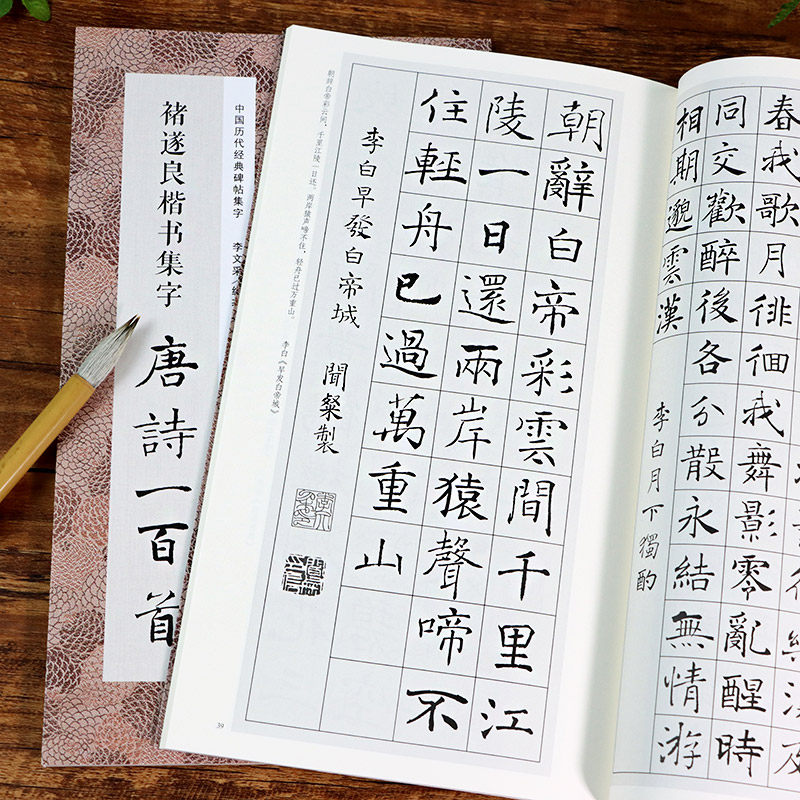 褚遂良楷书集字
唐詩一百首
中国历代经典碑帖集字
李文采
朝辭白帝彩雲間千里江
陵一日還兩岸猿聲啼不
住輕舟已過萬重山
李白早發白帝城
聞粲製
朝辞白帝彩云间，千里江陵一日还。两岸猿声啼不住，轻舟已过万重山。
李白《早发白帝城》
39
春我歌月徘徊我舞影零亂醒時
同交歡醉後各分散永結無情游
相期邈雲漢
李白月下獨酌